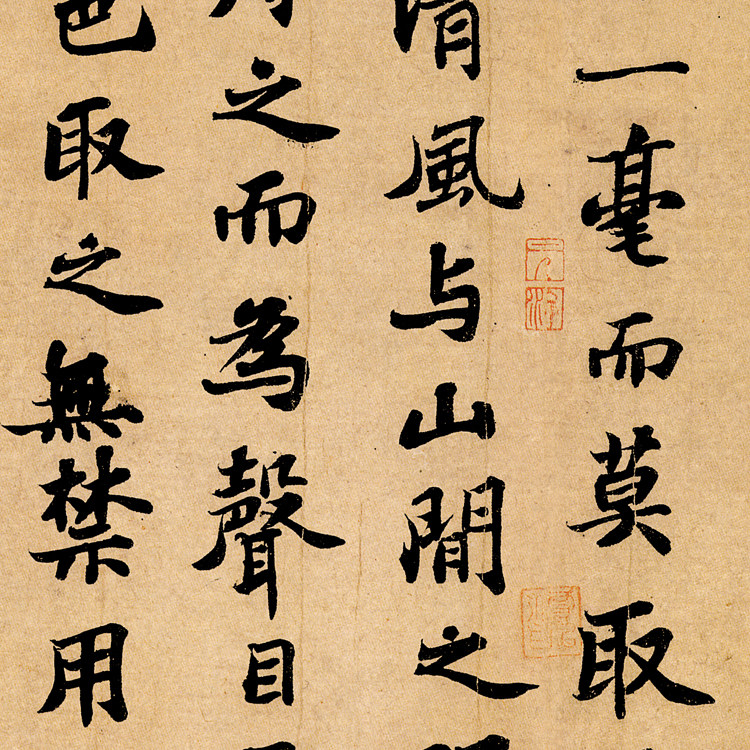 一毫而莫取
清風与山間之
之而為聲目
色取之無禁用